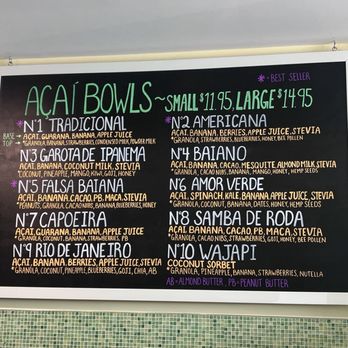 * = BEST SELLER
AÇAÍ BOWLS ~ SMALL $11.95, LARGE $14.95
*N°1 TRADICIONAL
BASE → AÇAI, GUARANA, BANANA, APPLE JUICE
TOP → *GRANOLA, BANANA, STRAWBERRIES, CONDENSED MILK, POWDER MILK
N°3 GAROTA DE IPANEMA
AÇAI, BANANA, COCONUT MILK, STEVIA
*COCONUT, PINEAPPLE, MANGO, KIWI, GOJI, HONEY
*N°5 FALSA BAIANA
AÇAI, BANANA, CACAO, PB, MACA, STEVIA
*PEANUTS, GRANOLA, CACAO NIBS, BANANA, BLUEBERRIES, HONEY
N°7 CAPOEIRA
AÇAI, GUARANA, BANANA, APPLE JUICE
*GRANOLA, COCONUT, BANANA, STRAWBERRIES, PB
N°9 RIO DE JANEIRO
AÇAI, BANANA, BERRIES, APPLE JUICE, STEVIA
*GRANOLA, COCONUT, PINEAPPLE, BLUEBERRIES, GOJI, CHIA, AB
*N°2 AMERICANA
AÇAI, BANANA, BERRIES, APPLE JUICE, STEVIA
*GRANOLA, BANANA, STRAWBERRIES, BLUEBERRIES, HONEY, BEE POLLEN
N°4 BAIANO
AÇAI, BANANA, CACAO, MESQUITE, ALMOND MILK, STEVIA
*GRANOLA, CACAO NIBS, BANANA, MANGO, HONEY, HEMP SEEDS
N°6 AMOR VERDE
AÇAI, SPINACH, KALE, BANANA, APPLE JUICE, STEVIA
*GRANOLA, COCONUT, BANANA, DATES, HONEY, HEMP SEEDS
N°8 SAMBA DE RODA
AÇAI, BANANA, CACAO, PB, MACA, STEVIA
*GRANOLA, CACAO NIBS, STRAWBERRIES, GOJI, HONEY, BEE POLLEN
N°10 WAJAPI
COCONUT SORBET
*GRANOLA, PINEAPPLE, BANANA, STRAWBERRIES, NUTELLA
AB = ALMOND BUTTER, PB = PEANUT BUTTER